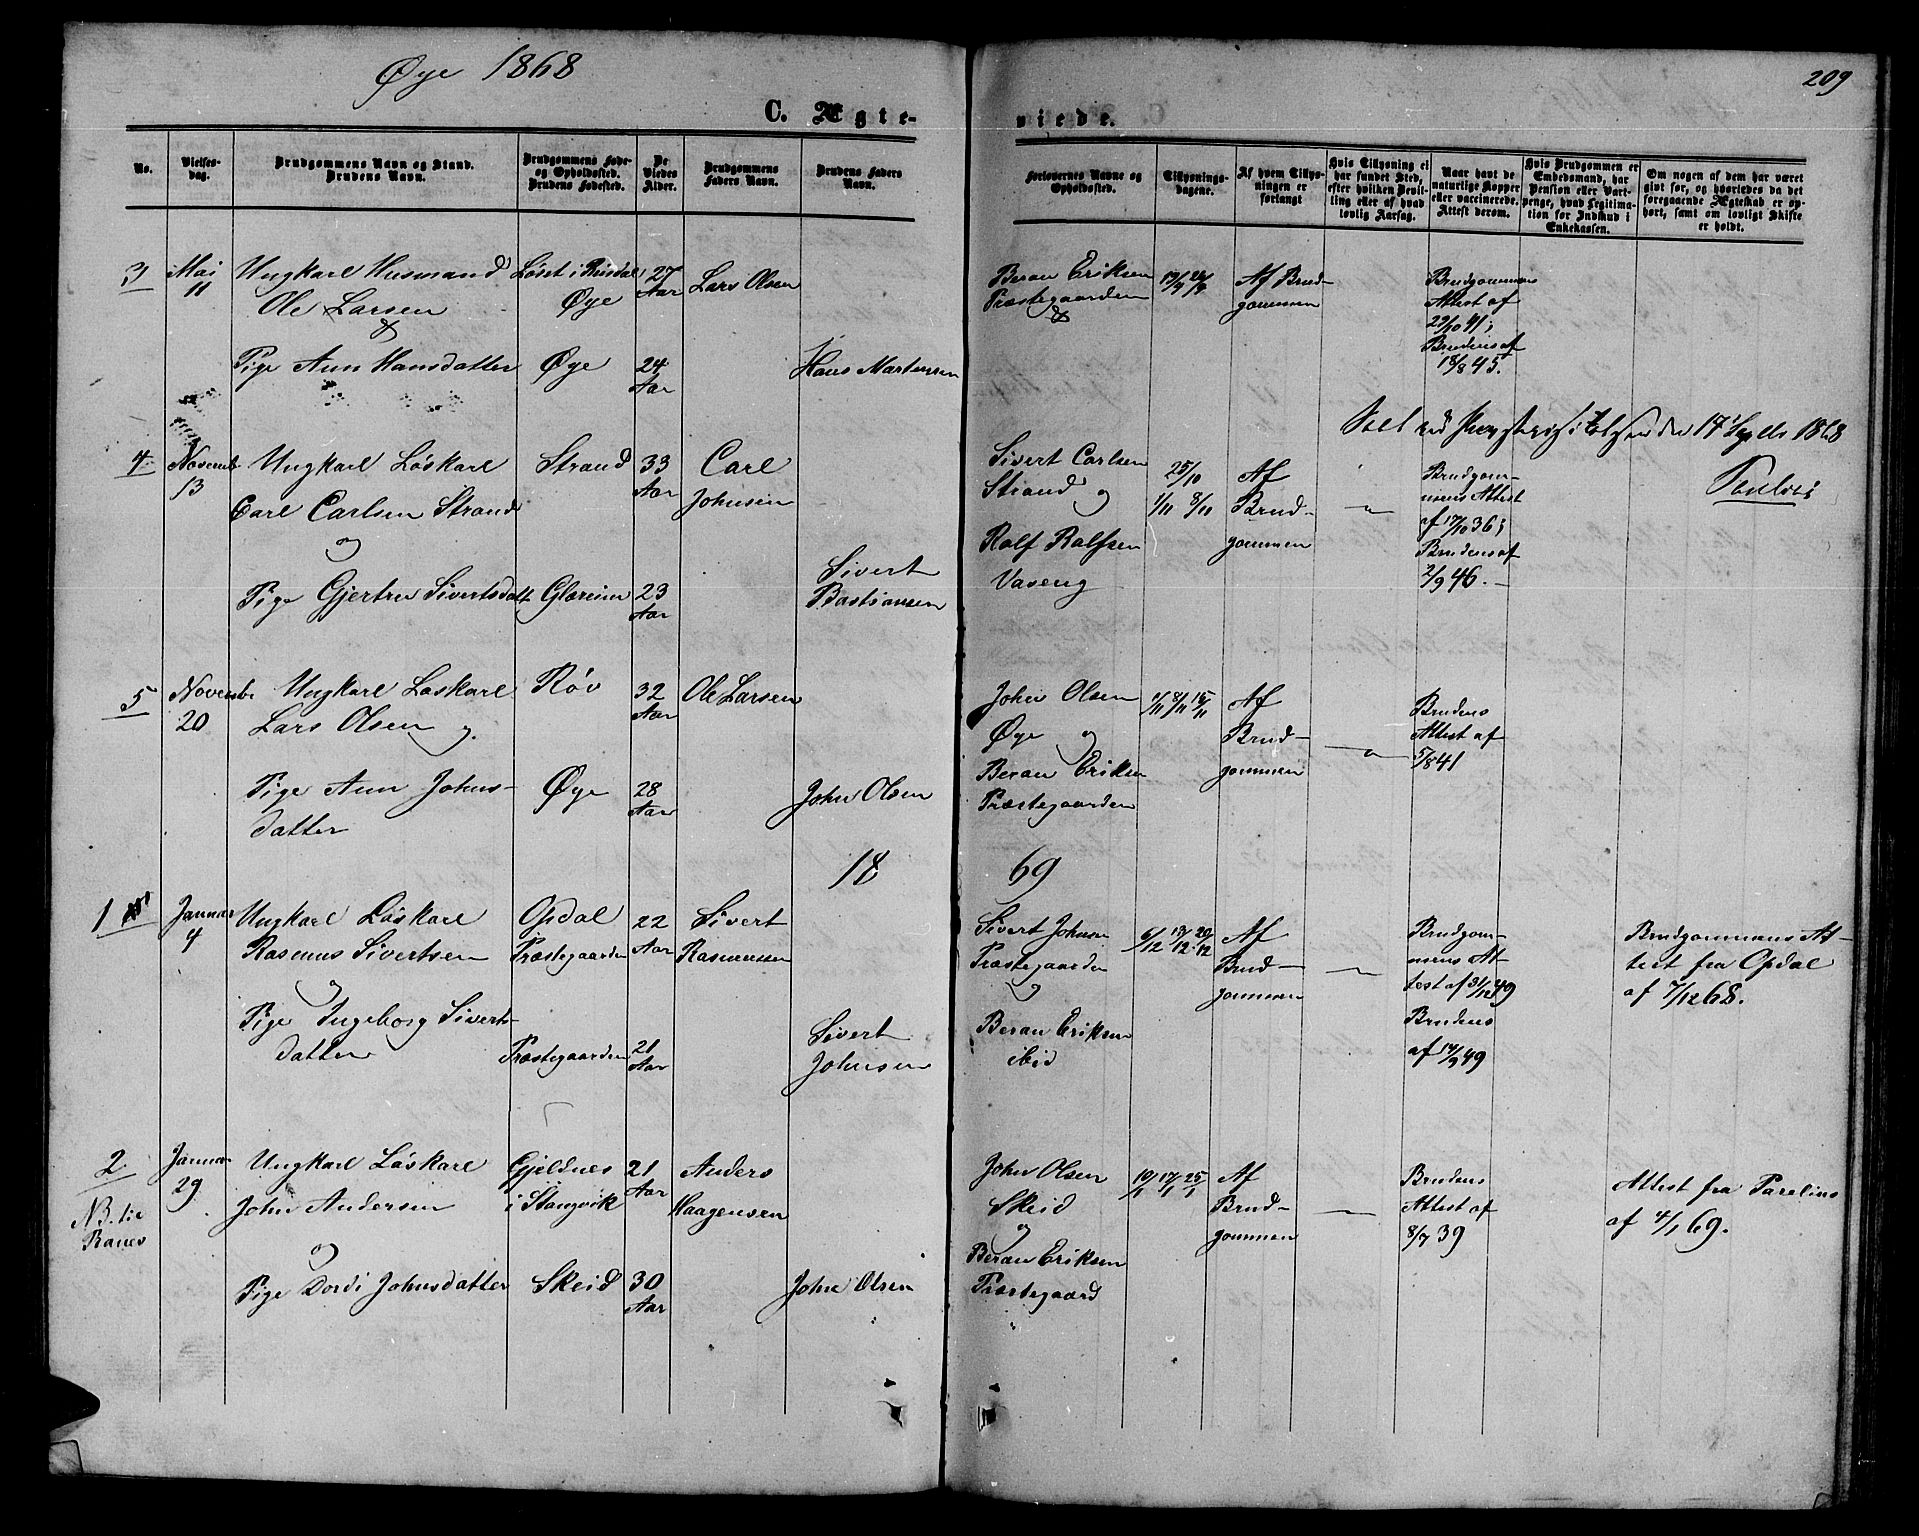 Øye 1868
209
C. Ægte-
viede.
No.
Vielses-
dag.
Brudgommens Navn og Stand.
Brudens Navn.
Brudgommens Føde-
og Opholdssted.
Brudens Fødested.
De
Viedes
Alder.
Brudgommens
Faders Navn.
Brudens Faders
Navn.
Forlovernes Navne og
Opholdssted.
Tillysnings-
dagene.
Af hvem Tillys-
ningen er
forlangt
Hvis Tillysning ei
har fundet Sted,
efter hvilken Bevil-
ling eller af hvad
lovlig Aarsag.
Naar havt de
naturlige Kopper
eller vaccinerede.
Attest derom.
Hvis Brudgommen er
Embedsmand, har
Pension eller Vart-
penge, hvad Legitima-
tion for Indskud i
Enkekassen.
Om nogen af dem har været
gift før, og hvorledes da det
foregaaende Ægteskab er op-
hørt, samt om lovligt Skifte
er holdt.
3
Mai
11
Ungkarl Husmand
Ole Larsen
&
Løset i Rindal
Øye
27
Aar
Lars Olsen
Beran Eriksen
Præstegaarden
&
Af Brud-
gommen
Brudgommens
Attest af
23/10 41;
Brudens af
18/8 45.
Pige Ann Hansdatter
Øye
24
Aar
Hans Martensen
1868
4
Novemb
13
Ungkarl Løskarl
Carl Carlsen Strand
og
Strand
33
Aar
Carl
Johnsen
Sivert Carlsen
Strand og
Rolf Rolfsen
Vaseng
25/10
1/11 8/11
Af
Brud-
gommen
Brudgom-
mens Attest
af 17/10 36;
Brudens af
2/9 46.
Pige Gjertru Sivertsdatt
Glæreim
23
Aar
Sivert
Bastiansen
5
Novembe
20
Ungkarl Løskarl
Lars Olsen og
Røv
32
Aar
Ole Larsen
John Olsen
Øye og
Beran Eriksen
Præstegaarden
1/11 8/11 15/11
Af
Brud-
gommen
Brudens
Attest af
5/8 41
Pige Ann Johns-
datter
Øye
28
Aar
John Olsen
18 69
1
Januar
4
Ungkarl Løskarl
Rasmus Sivertsen
og
Opdal
Præstegaarden
22
Aar
Sivert
Rasmussen
Sivert Johnsen
Præstegaarden
og
Beran Eriksen
ibid
6/12 13/12 20/12
Af
Brud-
gommen
Brudgom-
mens At-
test af 31/12 49
Brudens
af 14/9 49
Brudgommens At-
test fra Opdal
af 7/12 68.
Pige Ingeborg Siverts-
datter
Præstegaarden
21
Aar
Sivert
Johnsen
2
Januar
29
Ungkarl Løskarl
John Andersen
og
Gjeldnes
i Stangvik
21
Aar
Anders
Haagensen
John Olsen
Skeid
og
Beran Eriksen
Præstegaard
10/1 17/1 25/1
Af
Brud-
gommen
Brudens
Attest af
8/7 39
Attest fra Parelius
af 4/1 69.
NB. til
Ranes
Pige Dordi Johnsdatter
Skeid
30
Aar
John Olsen